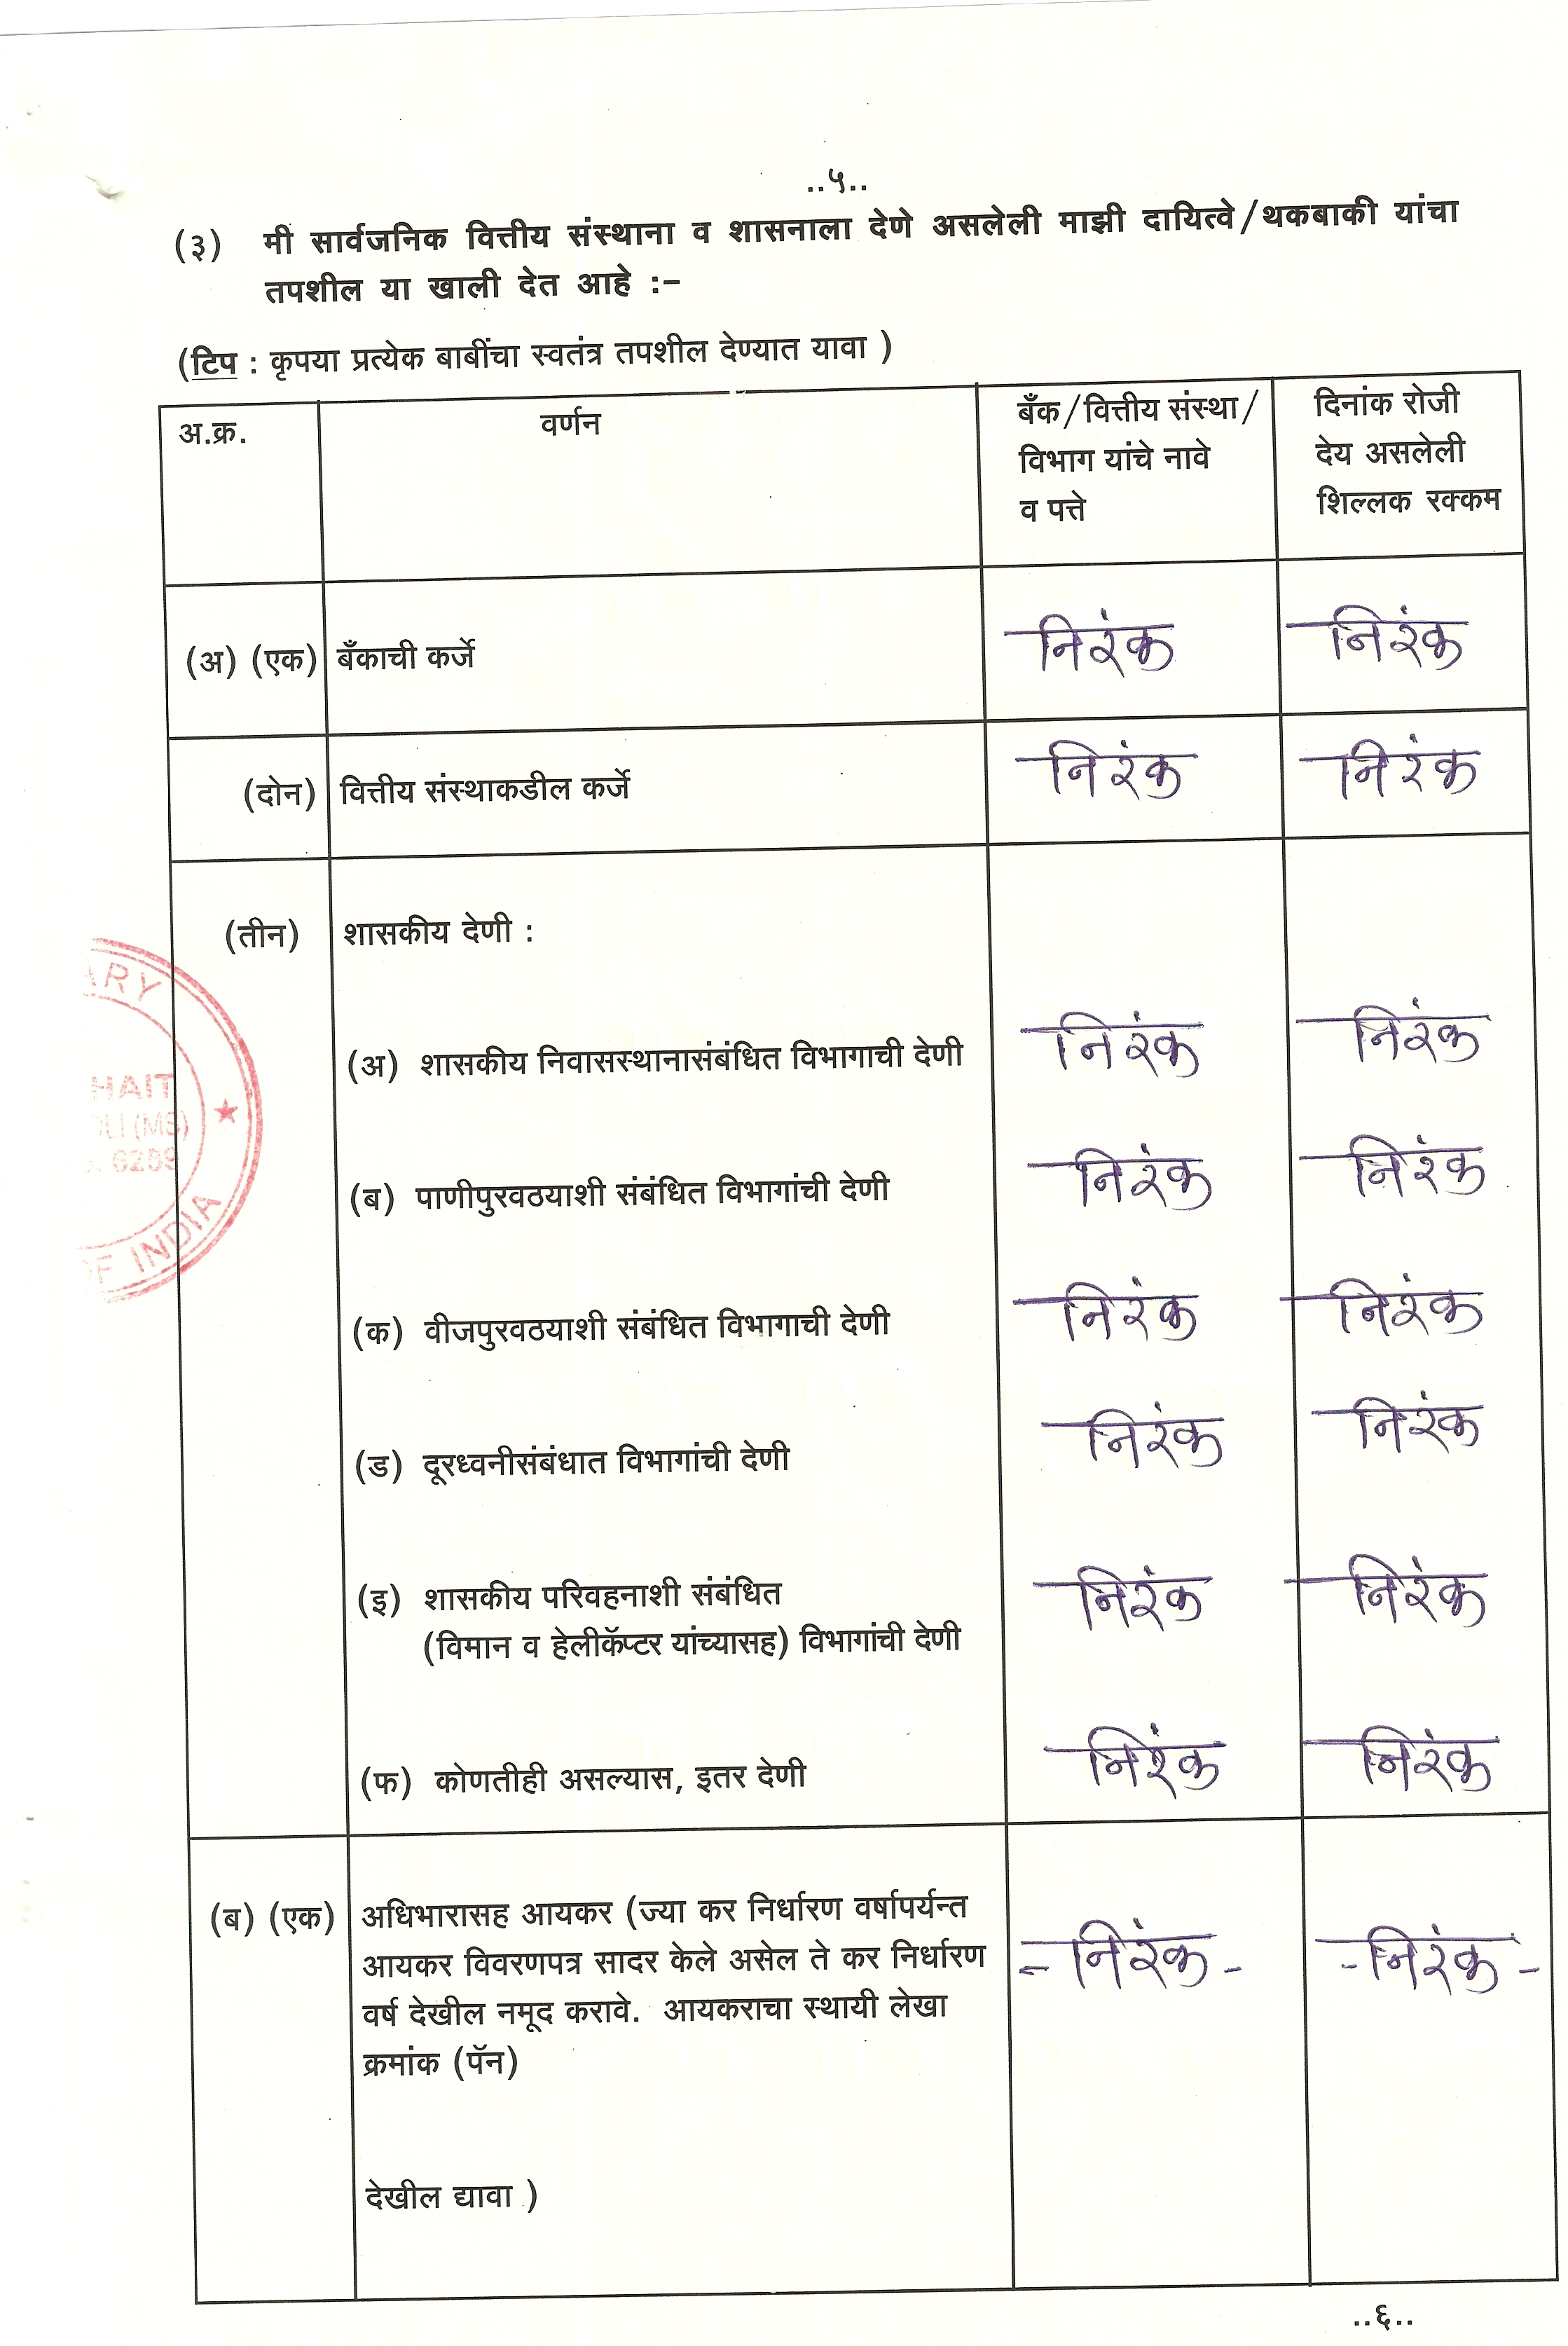 ..५..
(३) मी सार्वजनिक वित्तीय संस्थाना व शासनाला देणे असलेली माझी दायित्वे/थकबाकी यांचा
तपशील या खाली देत आहे :-
(टिप : कृपया प्रत्येक बाबींचा स्वतंत्र तपशील देण्यात यावा )
अ.क्र. वर्णन बँक/वित्तीय संस्था/ दिनांक रोजी
विभाग यांचे नावे देय असलेली
व पत्ते शिल्लक रक्कम
(अ) (एक) बँकाची कर्जे निरंक निरंक
(दोन) वित्तीय संस्थाकडील कर्जे निरंक निरंक
(तीन) शासकीय देणी :
(अ) शासकीय निवासस्थानासंबंधित विभागाची देणी निरंक निरंक
(ब) पाणीपुरवठयाशी संबंधित विभागांची देणी निरंक निरंक
(क) वीजपुरवठयाशी संबंधित विभागाची देणी निरंक निरंक
(ड) दूरध्वनीसंबंधात विभागांची देणी निरंक निरंक
(इ) शासकीय परिवहनाशी संबंधित निरंक निरंक
(विमान व हेलीकॅप्टर यांच्यासह) विभागांची देणी
(फ) कोणतीही असल्यास, इतर देणी निरंक निरंक
(ब) (एक) अधिभारासह आयकर (ज्या कर निर्धारण वर्षापर्यन्त
आयकर विवरणपत्र सादर केले असेल ते कर निर्धारण - निरंक - - निरंक -
वर्ष देखील नमूद करावे. आयकराचा स्थायी लेखा
क्रमांक (पॅन)
देखील द्यावा )
ARY
HAIT
LI (MS)
OF INDIA
..६..